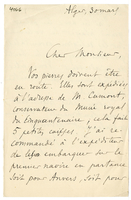 Alger, 30 mars
Cher Monsieur,
Vos pierres doivent être
en route. Elles sont expédiées
à l'adresse de M.
conservateur du Musée royal
du Cinquantenaire, cela fait
5 petites caisses. J'ai re-
commandé à l'expéditeur
de les embarquer sur le
premier navire en partance
soit pour Anvers, soit pour